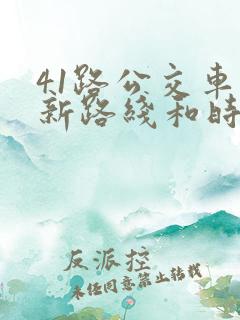 41路公交车
新路线和时
反派控
未经同意禁止转载